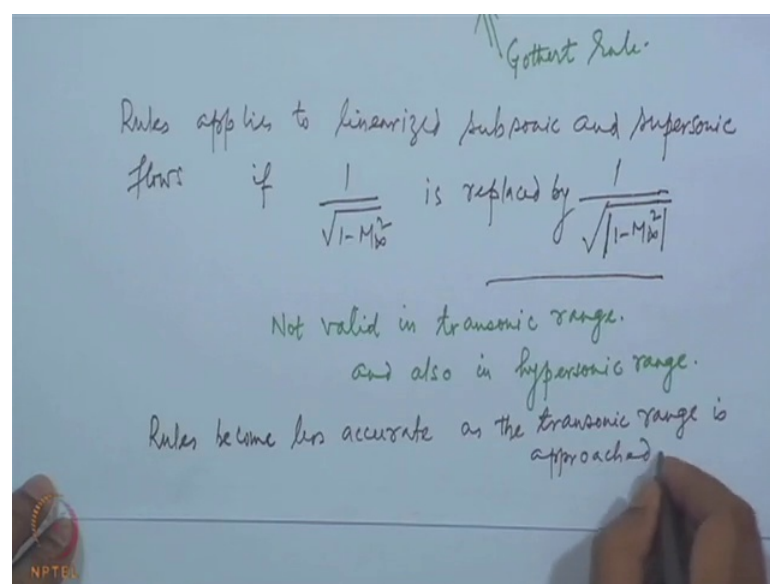 Gothert Rule.
Rules applies to linearized subsonic and supersonic
flows if 1/√(1-M∞²) is replaced by 1/√|1-M∞²|
Not valid in transonic range.
and also in hypersonic range.
Rules become less accurate as the transonic range is
approached
NPTEL